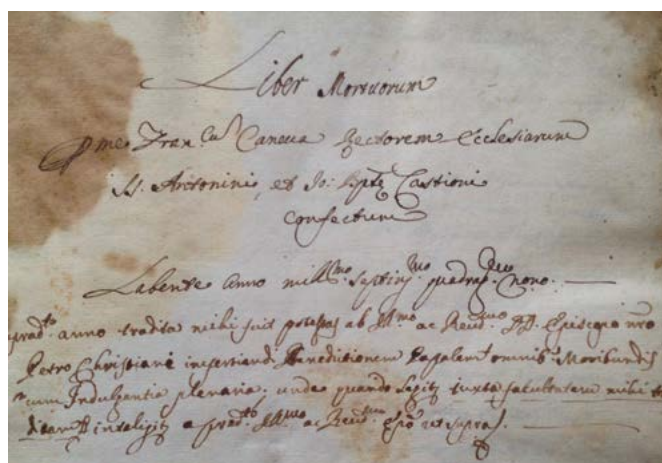 Liber Mortuorum
p me Fran.cum Canova Rectorem Ecclesiarum
SS. Antonini, et Jo: Bptæ Castioni
confectum
Labente Anno mill.mo septing.mo quadrag.mo nono.
prad.to anno tradita mihi fuit potestas ab Ill.mo ac Reud.mo DD. Episcopo nro
Petro Christiani inpertiendi Benedictionem Papalem omnib. Moribundis
cum Indulgentia plenaria. unde quando legitr iuxta facultatem mihi
intelligitr a prad.to Ill.mo ac Reud.mo Epo ut supra.